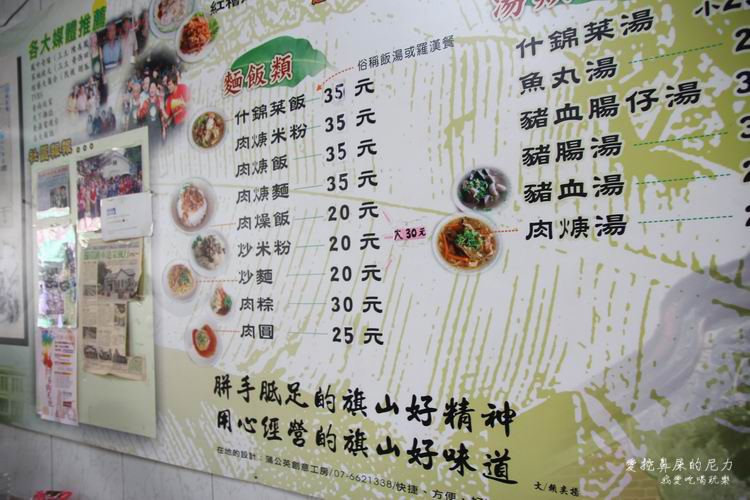 各大媒體推薦
麵飯類
俗稱飯湯或羅漢餐
什錦菜飯 35 元
肉焿米粉 35 元
肉焿飯 35 元
肉焿麵 35 元
肉燥飯 20 元
炒米粉 20 元
炒麵 20 元
大30元
肉粽 30 元
肉圓 25 元
什錦菜湯
魚丸湯
豬血腸仔湯
豬腸湯
豬血湯
肉焿湯
胼手胝足的旗山好精神
用心經營的旗山好味道
在地的設計．蒲公英創意工房/07-6621338/快捷、方便、
愛挖鼻屎的尼力
我愛吃喝玩樂